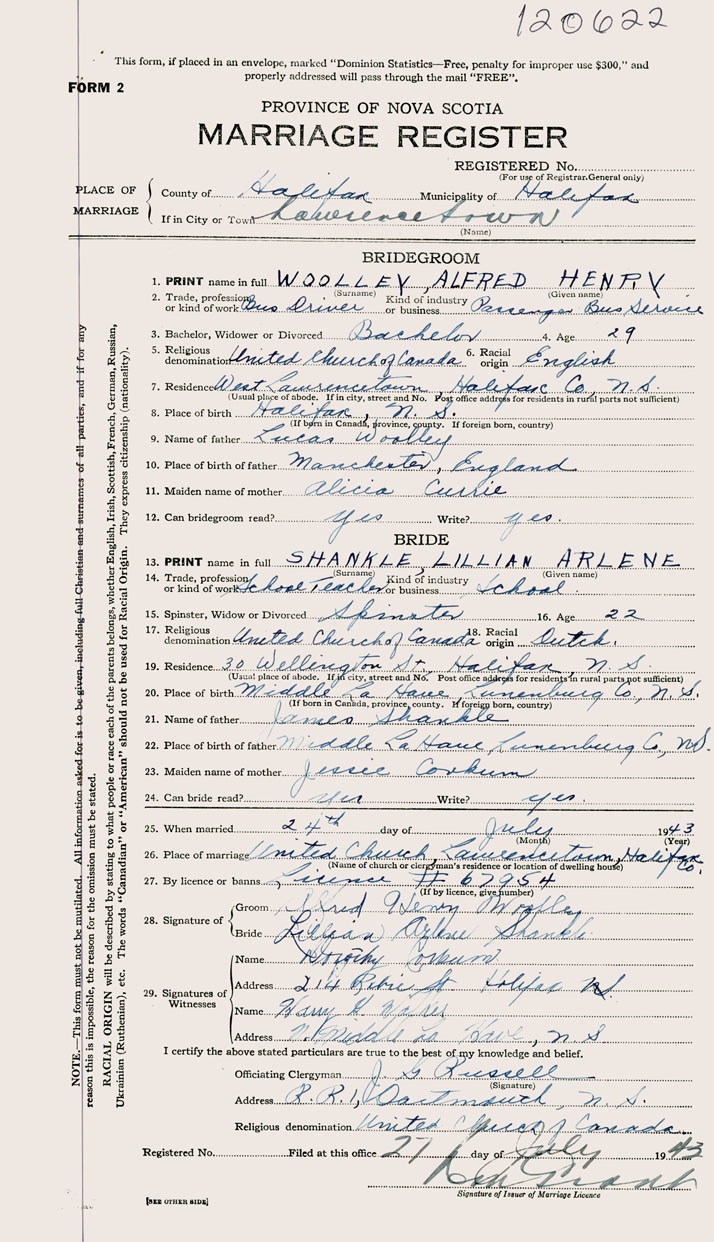 120622
This form, if placed in an envelope, marked "Dominion Statistics—Free, penalty for improper use $300," and
properly addressed will pass through the mail "FREE".
FORM 2
PROVINCE OF NOVA SCOTIA
MARRIAGE REGISTER
REGISTERED No.
(For use of Registrar General only)
PLACE OF MARRIAGE
County of Halifax Municipality of Halifax
If in City or Town Lawrencetown
(Name)
BRIDEGROOM
1. PRINT name in full WOOLLEY, ALFRED HENRY
(Surname) (Given name)
2. Trade, profession or kind of work Bus Driver Kind of industry or business Passenger Bus Service
3. Bachelor, Widower or Divorced Bachelor 4. Age 29
5. Religious denomination United Church of Canada 6. Racial origin English
7. Residence West Lawrencetown, Halifax Co, N.S.
(Usual place of abode. If in city, street and No. Post office address for residents in rural parts not sufficient)
8. Place of birth Halifax, N.S.
(If born in Canada, province, county. If foreign born, country)
9. Name of father Lucas Woolley
10. Place of birth of father Manchester, England
11. Maiden name of mother Alicia Currie
12. Can bridegroom read? yes Write? yes.
BRIDE
13. PRINT name in full SHANKLE, LILLIAN ARLENE
(Surname) (Given name)
14. Trade, profession or kind of work School Teacher Kind of industry or business School
15. Spinster, Widow or Divorced Spinster 16. Age 22
17. Religious denomination United Church of Canada 18. Racial origin Dutch.
19. Residence 30 Wellington St., Halifax, N.S.
(Usual place of abode. If in city, street and No. Post office address for residents in rural parts not sufficient)
20. Place of birth Middle La Have, Lunenburg Co, N.S.
(If born in Canada, province, county. If foreign born, country)
21. Name of father James Shankle
22. Place of birth of father Middle La Have, Lunenburg Co, N.S.
23. Maiden name of mother Jessie Corkum
24. Can bride read? yes Write? yes.
25. When married 24th day of July 1943
(Month) (Year)
26. Place of marriage United Church, Lawrencetown, Halifax Co.
(Name of church or clergyman's residence or location of dwelling house)
27. By licence or banns Licence # 67954
(If by licence, give number)
28. Signature of
Groom Alfred Henry Woolley
Bride Lillian Arlene Shankle
29. Signatures of Witnesses
Name Dorothy Corkum
Address 214 Robie St Halifax NS
Name Harry
Address Middle La Have, N S
I certify the above stated particulars are true to the best of my knowledge and belief.
Officiating Clergyman J. G Russell
(Signature)
Address R.R.1, Dartmouth, N.S.
Religious denomination United Church of Canada
Registered No. Filed at this office 27 day of July 1943
Signature of Issuer of Marriage Licence
[SEE OTHER SIDE]
NOTE.—This form must not be mutilated. All information asked for is to be given, including full Christian and surnames of all parties, and if for any
reason this is impossible, the reason for the omission must be stated.
RACIAL ORIGIN will be described by stating to what people or race each of the parents belongs, whether English, Irish, Scottish, French, German, Russian,
Ukrainian (Ruthenian), etc. The words "Canadian" or "American" should not be used for Racial Origin. They express citizenship (nationality).